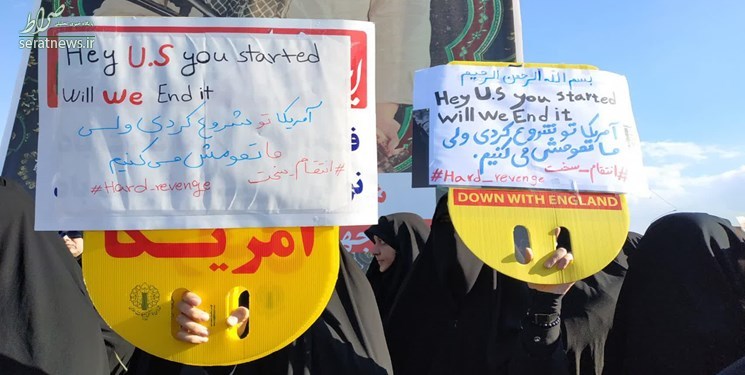 صراط
seratnews.ir
Hey U.S you started
Will We End it
آمریکا تو شروع کردی ولی
ما تمومش می‌کنیم
#انتقام_سخت
#Hard_revenge
آمریکا
بسم الله الرحمن الرحیم
Hey U.S you started
will we End it
آمریکا تو شروع کردی ولی
ما تمومش می کنیم.
#انتقام_سخت
#Hard_revenge
DOWN WITH ENGLAND